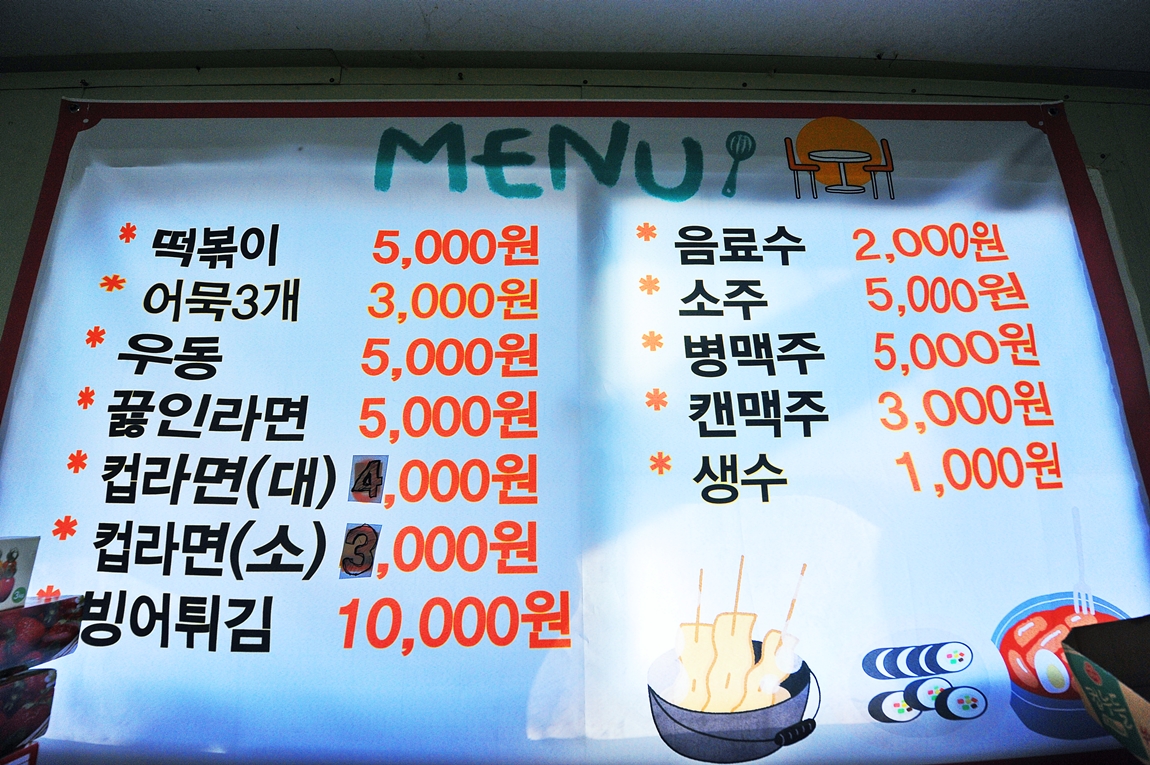 MENU
* 떡볶이 5,000원
* 어묵3개 3,000원
* 우동 5,000원
* 끓인라면 5,000원
* 컵라면(대) 4,000원
* 컵라면(소) 3,000원
* 빙어튀김 10,000원
* 음료수 2,000원
* 소주 5,000원
* 병맥주 5,000원
* 캔맥주 3,000원
* 생수 1,000원